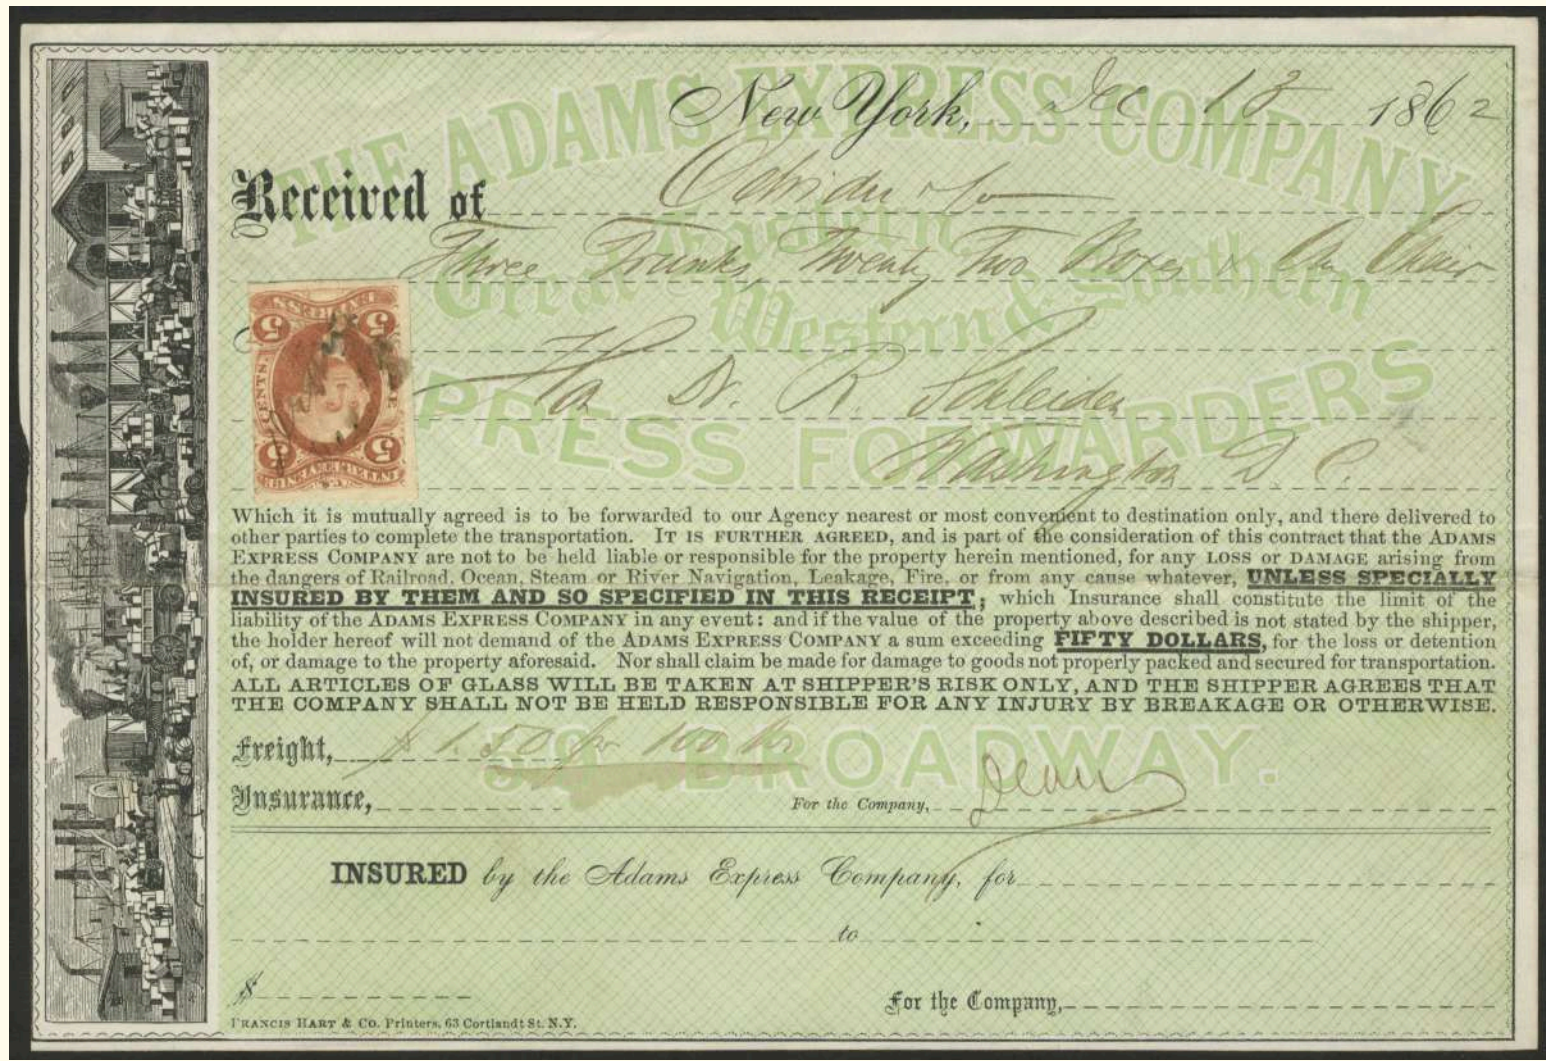 THE ADAMS EXPRESS COMPANY
Great Eastern Western & Southern
EXPRESS FORWARDERS
59 BROADWAY.
New York, Dec 13 1862
Received of & Co
Three Trunks, Twenty Two Boxes & One Chair
Hon Dr. R. Schleiden
Washington D. C.
5 5
CENTS.
5 5
Which it is mutually agreed is to be forwarded to our Agency nearest or most convenient to destination only, and there delivered to
other parties to complete the transportation. IT IS FURTHER AGREED, and is part of the consideration of this contract that the ADAMS
EXPRESS COMPANY are not to be held liable or responsible for the property herein mentioned, for any LOSS OR DAMAGE arising from
the dangers of Railroad, Ocean, Steam or River Navigation, Leakage, Fire, or from any cause whatever, UNLESS SPECIALLY
INSURED BY THEM AND SO SPECIFIED IN THIS RECEIPT; which Insurance shall constitute the limit of the
liability of the ADAMS EXPRESS COMPANY in any event: and if the value of the property above described is not stated by the shipper,
the holder hereof will not demand of the ADAMS EXPRESS COMPANY a sum exceeding FIFTY DOLLARS, for the loss or detention
of, or damage to the property aforesaid. Nor shall claim be made for damage to goods not properly packed and secured for transportation.
ALL ARTICLES OF GLASS WILL BE TAKEN AT SHIPPER'S RISK ONLY, AND THE SHIPPER AGREES THAT
THE COMPANY SHALL NOT BE HELD RESPONSIBLE FOR ANY INJURY BY BREAKAGE OR OTHERWISE.
Freight, $1.50 pr 100 lbs
Insurance, For the Company,
INSURED by the Adams Express Company, for
to
$ For the Company,
FRANCIS HART & CO. Printers, 63 Cortlandt St. N.Y.